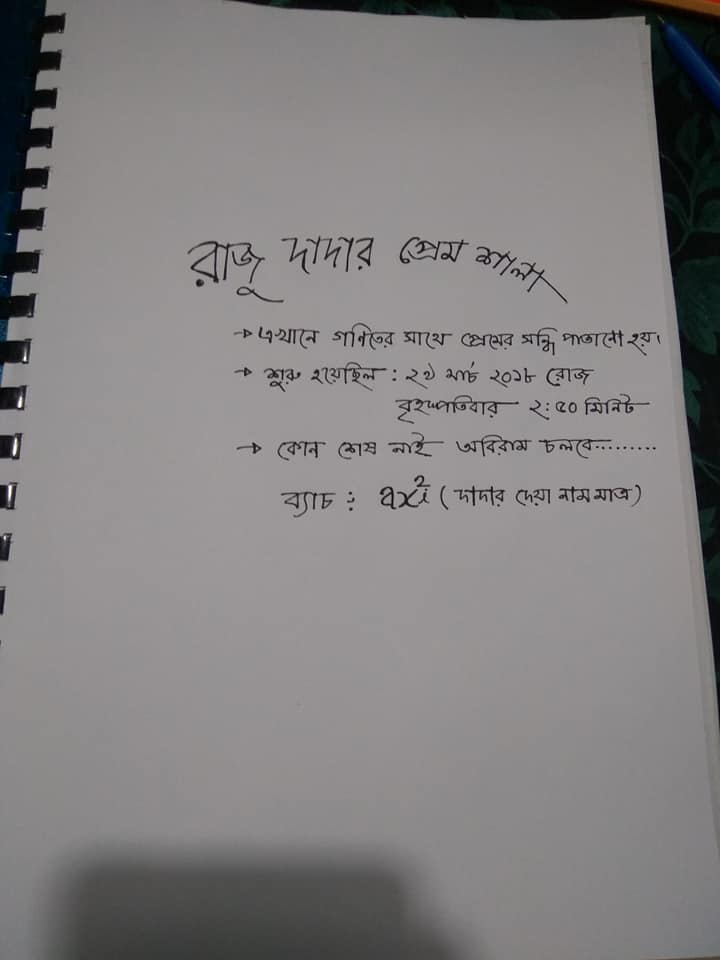 রাজু দাদার প্রেম শালা
→ এখানে গণিতের সাথে প্রেমের সন্ধি পাতানো হয়।
→ শুরু হয়েছিল : ২৯ মার্চ ২০১৮ রোজ
বৃহস্পতিবার ২:৫০ মিনিট
→ কোন শেষ নাই অবিরাম চলবে.........
ব্যাচ : (দাদার দেয়া নাম মাত্র)